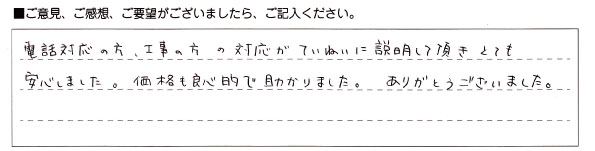 ■ご意見、ご感想、ご要望がございましたら、ご記入ください。
電話対応の方、工事の方の対応がていねいに説明して頂きとても
安心しました。価格も良心的で助かりました。ありがとうございました。